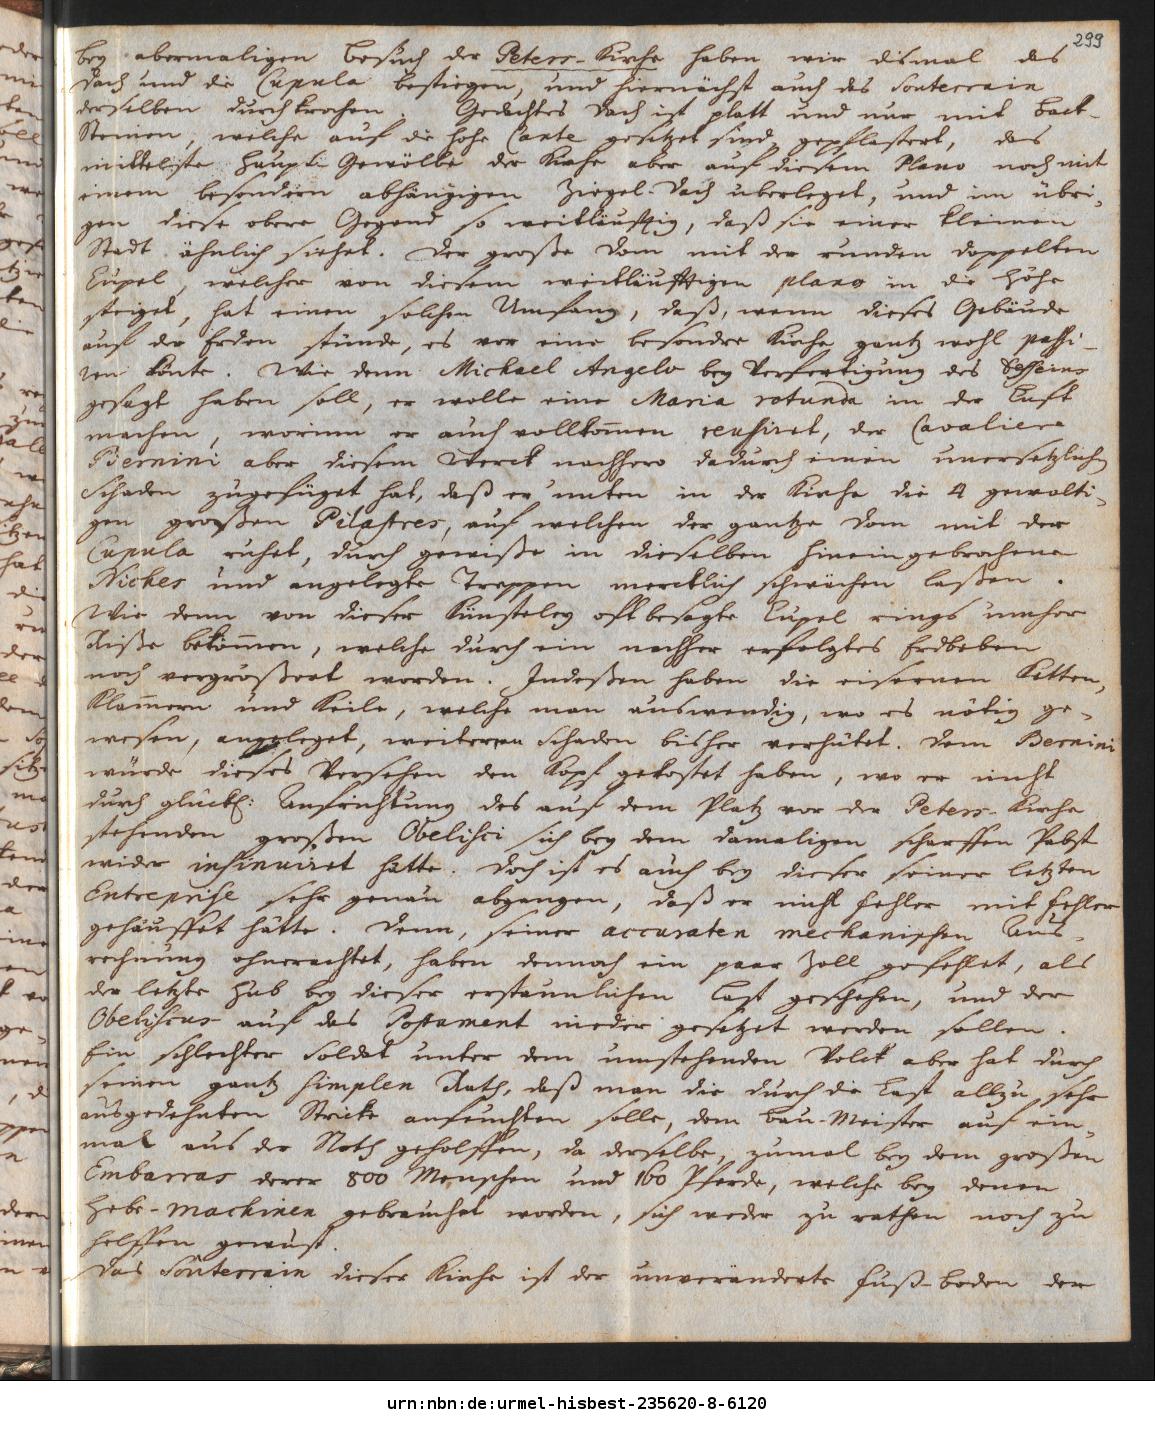 299
bey abermaligen Besuch der Peters-Kirche haben wir dismal das
Dach und die Cupula bestiegen, und hiernächst auch das Souterrain
derselben durchkrochen. Gedachtes Dach ist platt und nur mit Back-
Steinen, welche auf die hohe Cante gesetzet sind, gepflastert, das
mittelste Haupt-Gewölbe der Kirche aber auf diesem Plano noch mit
einem besondern abhängigen Ziegel-Dach uberleget, und im übri-
gen diese obere Gegend so weitläufftig, daß sie einer kleinen
Stadt ähnlich siehet. Der große Dom mit der runden doppelten
Cupel, welcher von diesem weitläufftigen plano in die Höhe
steiget, hat einen solchen Umfang, daß, wenn dieses Gebäude
auf der Erden stünde, es vor eine besondre Kirche gantz wohl passi-
ren könte. Wie denn Michael Angelo bey Verfertigung des Desseins
gesagt haben soll, er wolle eine Maria rotunda in der Lufft
machen, worinn er auch vollkom̄en reussiret, der Cavaliere
Bernini aber diesem Werck nachhero dadurch einen unersetzlichen
Schaden zugefüget hat, daß er unten in der Kirche die 4 gewalti-
gen großen Pilastres, auf welchen der gantze Dom mit der
Cupula ruhet, durch gewiße in dieselben hineingebrochene
Niches und angelegte Treppen mercklich schwächen laßen.
Wie denn von dieser Künsteley offtbesagte Cupel rings umher
Riße bekom̄en, welche durch ein nachher erfolgtes Erdbeben
noch vergrößert worden. Indeßen haben die eisernen Ketten,
Klam̄ern und Keile, welche man auswendig, wo es nötig ge-
wesen, angeleget, weiteren Schaden bisher verhütet. Dem Bernini
würde dieses Versehen den Kopf gekostet haben, wo er nicht
durch glückl: Aufrichtung des auf dem Platz vor der Peters-Kirche
stehenden großen Obelisci sich bey dem damaligen scharffen Pabst
wider insinuiret hätte. Doch ist es auch bey dieser seiner letzten
Entreprise sehr genau abgangen, daß er nicht Fehler mit Fehler
gehäuffet hätte. Denn, seiner accuraten mechanischen Aus-
rechnung ohnerachtet, haben dennoch ein paar Zoll gefehlet, als
der letzte Hub bey dieser erstaunlichen Last geschehen, und der
Obeliscus auf das Postament nieder gesetzet werden sollen.
Ein schlechter Soldat unter dem umstehenden Volck aber hat durch
seinen gantz simplen Rath, daß man die durch die Last allzu sehr
ausgedehnten Stricke anfeuchten solle, dem Bau-Meister auf ein-
mal aus der Noth geholffen, da derselbe, zumal bey dem großen
Embarras derer 800 Menschen und 160 Pferde, welche bey denen
Hebe-machinen gebrauchet worden, sich weder zu rathen noch zu
helffen gewust.
Das Souterrain dieser Kirche ist der unveränderte Fuß-boden der
urn:nbn:de:urmel-hisbest-235620-8-6120